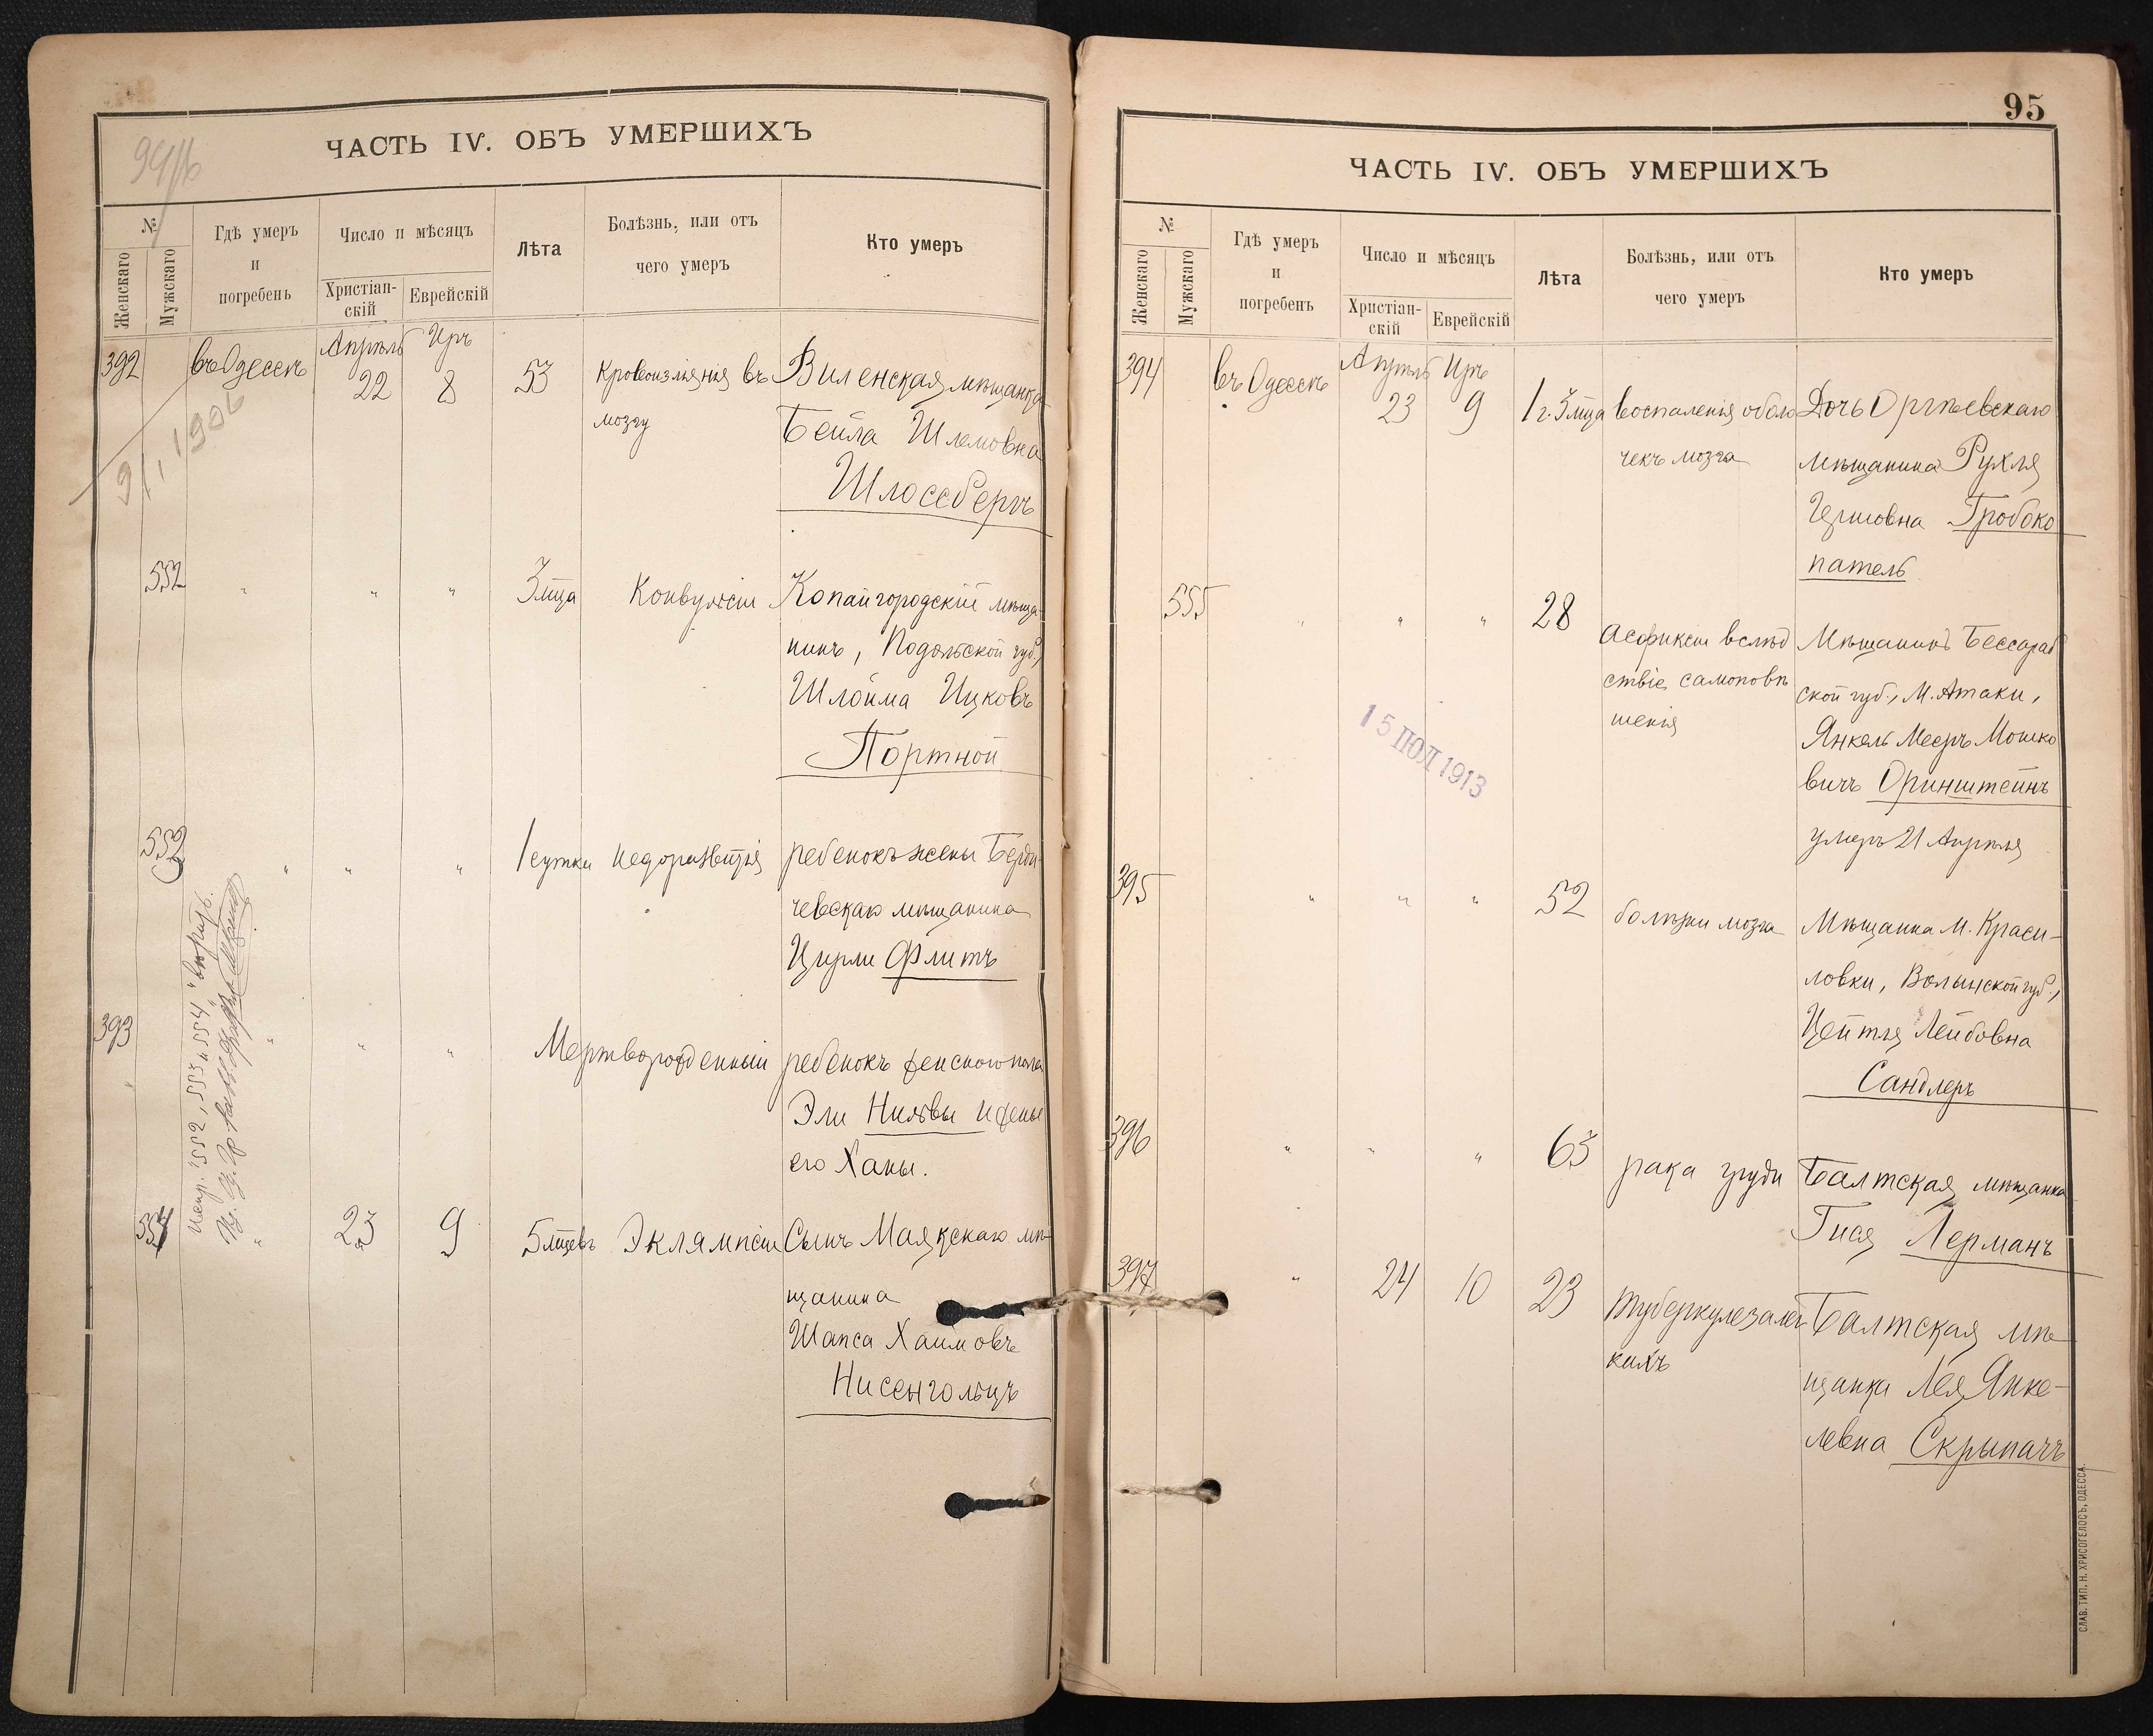 94/1б
ЧАСТЬ IV. ОБЪ УМЕРШИХЪ
№
Женскаго
Мужскаго
Гдѣ умеръ
и
погребенъ
Число и мѣсяцъ
Христіан-
скій
Еврейскій
Лѣта
Болѣзнь, или отъ
чего умеръ
Кто умеръ
392 въ Одессѣ Апрѣль Иръ
22 8 53 Кровоизліянія въ Виленская мѣщанка
мозгу Бейла Шлемовна
Шлосбергъ
91, 1906
552 " " " 3 мца Конвульсіи Копайгородскій мѣща-
нинъ, Подольской губ.,
Шлойма Ицковъ
Портной
553 " " " 1 сутки недоразвитія ребенокъ жены Берди-
чевскаго мѣщанина
Цирли Флитъ
393 " " " Мертворожденный ребенокъ женского пола
Эли Нильвы и жены
его Ханы.
554 " 23 9 5 мцевъ Эклямпсіи Сынъ Маякскаго мѣ-
щанина
Шапса Хаимовъ
Нисенгольцъ
испр. "552, 553 и 554" вѣрно.
95
ЧАСТЬ IV. ОБЪ УМЕРШИХЪ
№
Женскаго
Мужскаго
Гдѣ умеръ
и
погребенъ
Число и мѣсяцъ
Христіан-
скій
Еврейскій
Лѣта
Болѣзнь, или отъ
чего умеръ
Кто умеръ
394 въ Одессѣ Апрѣль Иръ
23 9 1 г. 3 мца воспаленія оболо Дочь Оргѣевскаго
чекъ мозга мѣщанина Рухля
Гершовна Гробоко
патель
555 " " " 28 Асфиксіи вслѣд Мѣщанинъ Бессараб
ствіе самоповѣ ской губ., М. Атаки,
шенія Янкель Мееръ Мошко
вичъ Оринштейнъ
умеръ 21 Апрѣля
15 ІЮЛ 1913
395 " " " 52 болѣзни мозга Мѣщанка М. Краси-
ловки, Волынской губ.,
Цейтля Лейбовна
Сандлеръ
396 " " " 63 рака груди Балтская мѣщанка
Гися Лерманъ
397 " 24 10 23 туберкулеза лег Балтская мѣ
кихъ щанка Лея Янке-
левна Скрыпачъ
СЛАВ. ТИП. Н. ХРИСОГЕЛОСЪ, ОДЕССА.